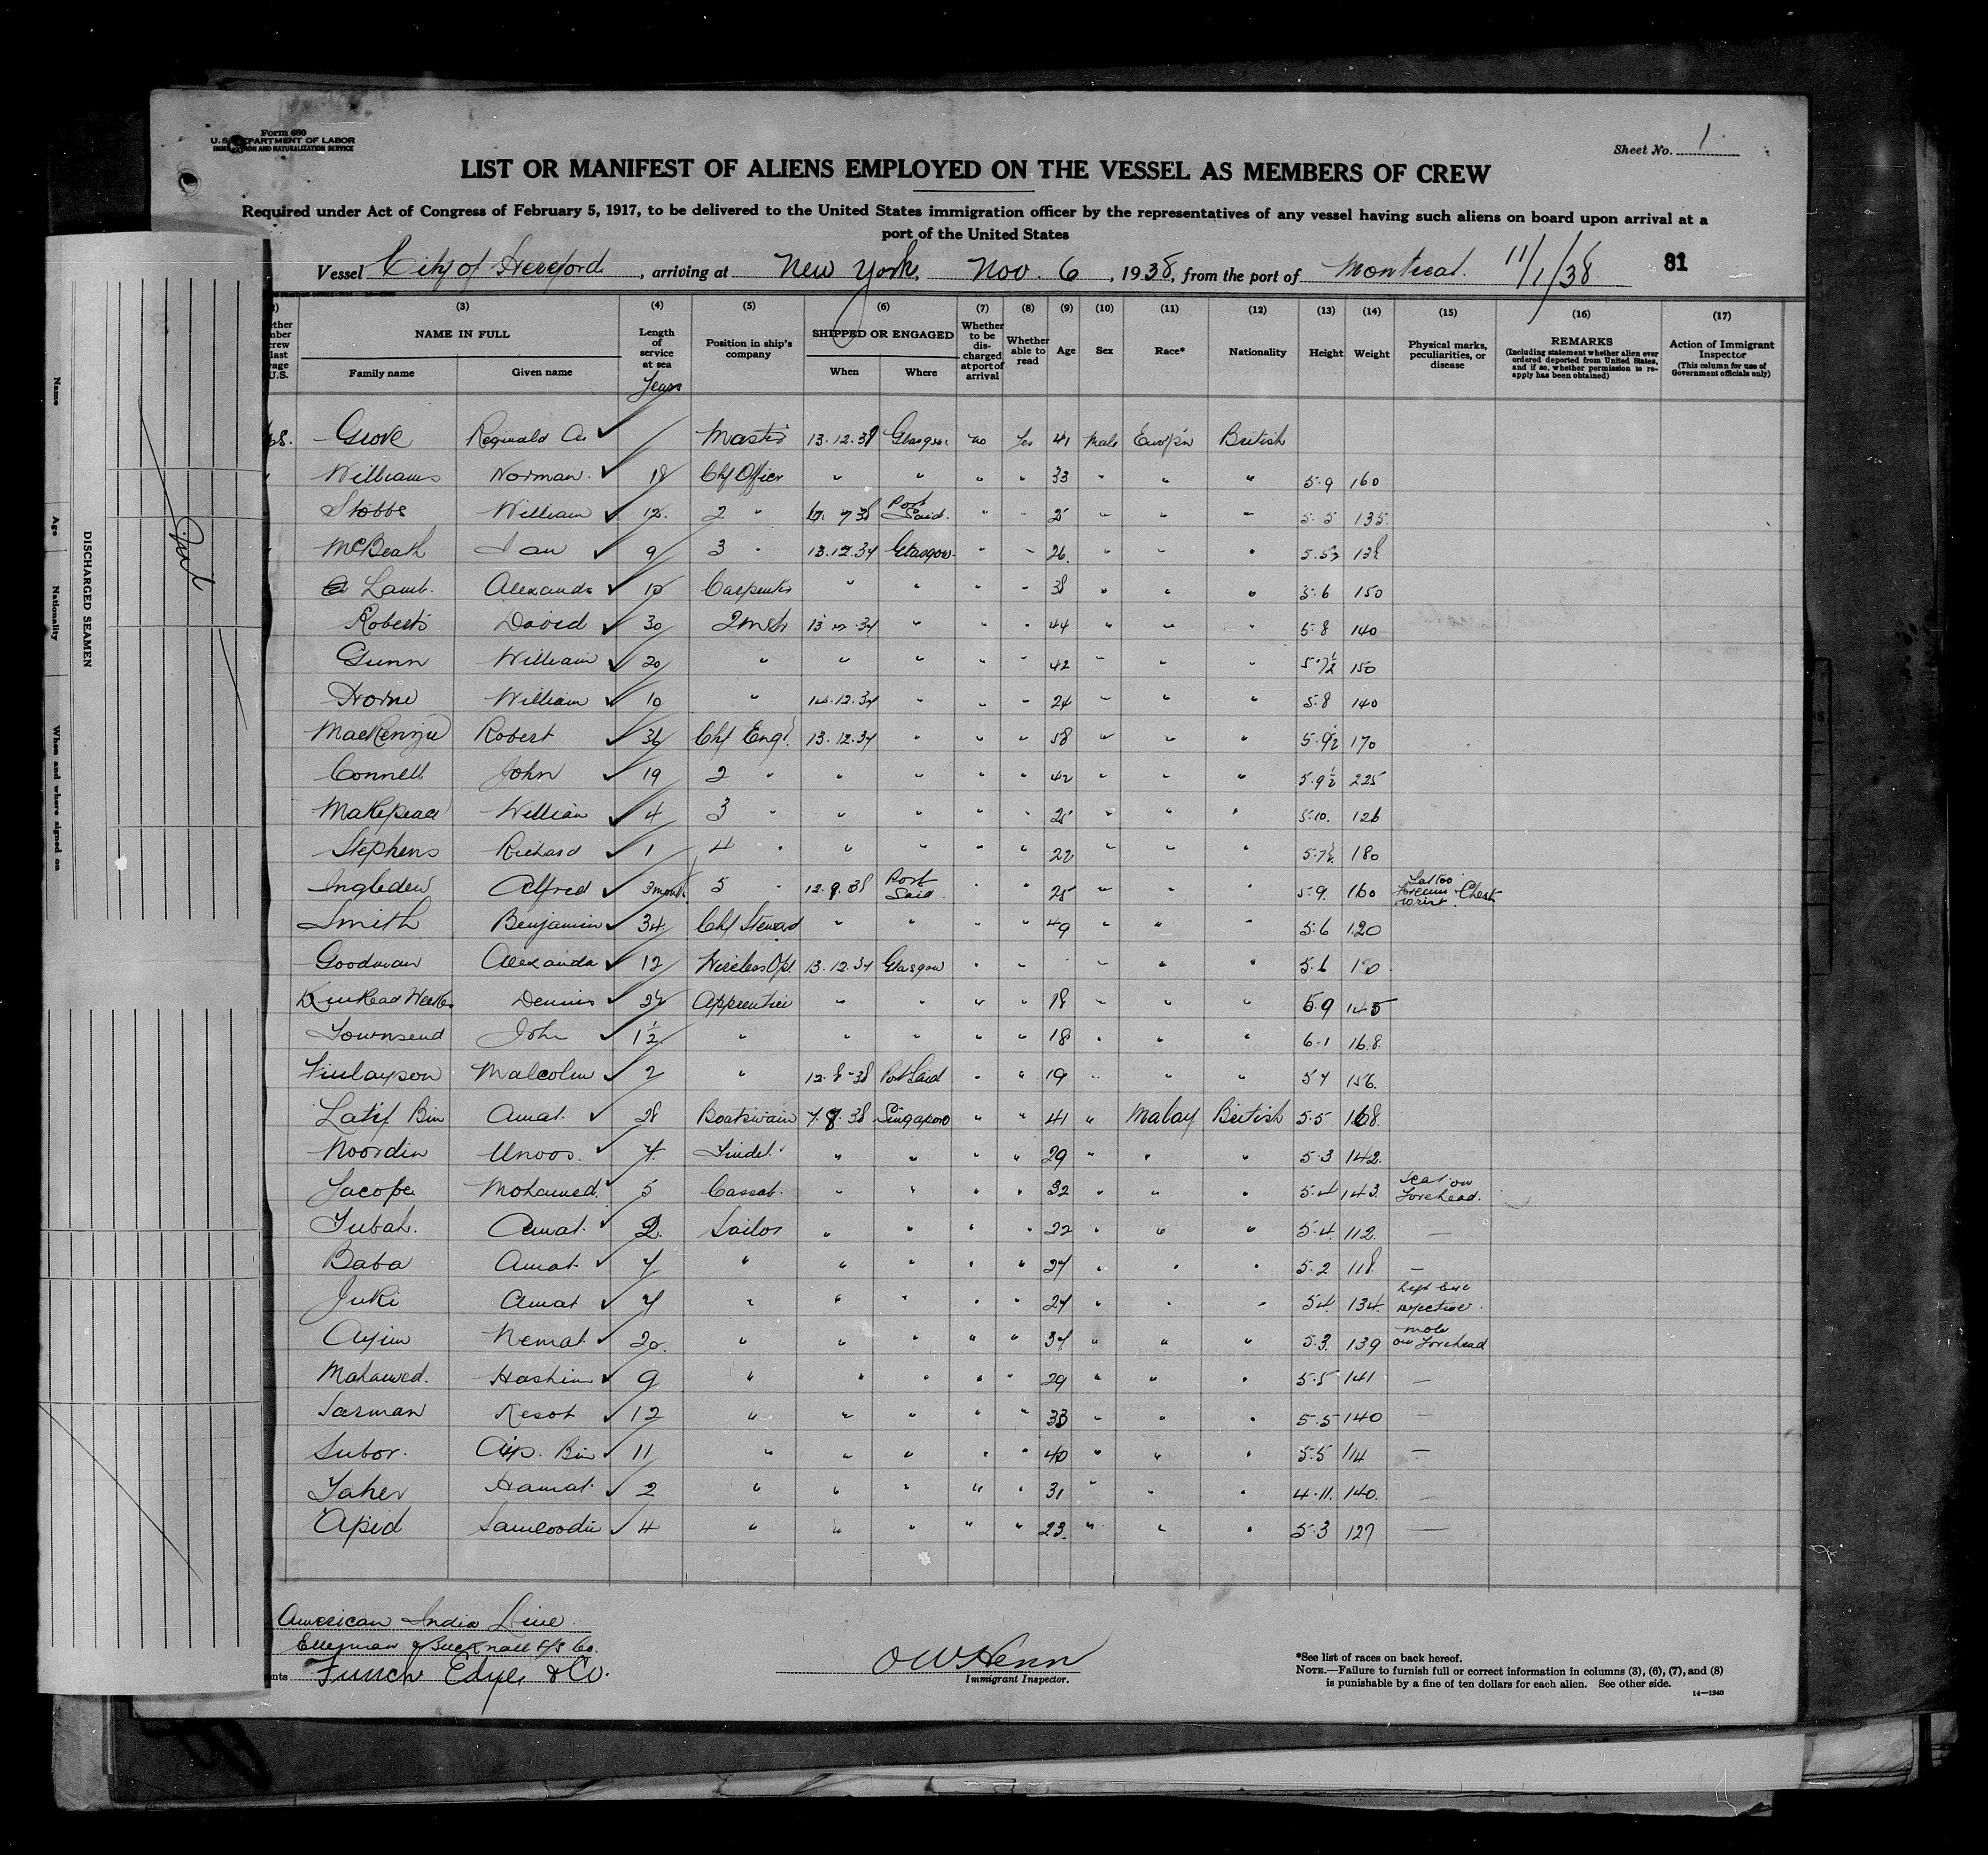 Form 680
U.S. DEPARTMENT OF LABOR
IMMIGRATION AND NATURALIZATION SERVICE
Sheet No. 1
LIST OR MANIFEST OF ALIENS EMPLOYED ON THE VESSEL AS MEMBERS OF CREW
Required under Act of Congress of February 5, 1917, to be delivered to the United States immigration officer by the representatives of any vessel having such aliens on board upon arrival at a
port of the United States
Vessel City of Hereford, arriving at New York, Nov. 6, 1938, from the port of Montreal. 11/1/38 81
(3) (4) (5) (6) (7) (8) (9) (10) (11) (12) (13) (14) (15) (16) (17)
NAME IN FULL Family name Given name
Length of service at sea Years
Position in ship's company
SHIPPED OR ENGAGED When Where
Whether to be discharged at port of arrival
Whether able to read
Age Sex Race* Nationality Height Weight
Physical marks, peculiarities, or disease
REMARKS (Including statement whether alien ever ordered deported from United States, and if so, whether permission to reapply has been obtained)
Action of Immigrant Inspector (This column for use of Government officials only)
Grove Reginald ✓ Master Glasgow no Yes 41 Male Europ'n British
Williams Norman ✓ 18 Chf Officer " " " " 33 " " " 5.9 160
Stobbs William ✓ 2 " Port Said " " 25 " " " 5.5 135
McBeath Ian ✓ 9 3 " 13.12.37 Glasgow " " 26 " " " 138
Lamb. Alexander ✓ Carpenter " " " " 38 " " " 5.6 150
Roberts David ✓ 30 " " " 44 " " " 5.8 140
Gunn William ✓ 20 " " " " " 42 " " " 5.7½ 150
Horne William ✓ 10 " 14.12.37 " " " 24 " " " 5.8 140
MacKenzie Robert ✓ 36 Chf Engr. 13.12.37 " " " 58 " " " 5.9½ 170
Connell John ✓ 19 2 " " " " " 42 " " " 5.9½ 225
Makepeace William ✓ 4 3 " " " " " 25 " " " 5.10. 126
Stephens Richard ✓ 1 4 " " " " " 22 " " " 5.7½ 180
Ingledew Alfred ✓ 3 months 5 " Port Said " " 25 " " " 5.9. 160 Tattoo Chest wrist
Smith Benjamin ✓ 34 Chf Steward " " " " 49 " " " 5.6 120
Goodman Alexander ✓ 12 Wireless Opt 13.12.37 Glasgow " " " " " 5.6
Kinkead Weekes Dennis ✓ 2½ Apprentice " " " " 18 " " " 5.9 145
Townsend John ✓ 1½ " " " " " 18 " " " 6.1 168
Finlayson Malcolm ✓ 2 " Port Said " " 19 " " " 5.7 156
Latif Bin Amat. ✓ 28 Boatswain Singapore " " 41 " Malay British 5.5 168
Noordin Unoos. ✓ Tindel " " " " 29 " " " 5.3 142
Yacope Mohamed ✓ 5 Cassab. " " " " 32 " " " 5.4 143 Scar on Forehead.
Tubah. Amat. ✓ 2 Sailor " " " 22 " " " 5.4 112 —
Baba Amat ✓ 7 " " " " " 27 " " " 5.2 118 —
Juki Amat ✓ 7 " " " " " 27 " " " 5.4 134 Left Eye defective.
Nemat ✓ 20 " " " " " 37 " " " 5.3 139 mole on Forehead
Mahamed. Hashim ✓ 9 " " " " " 29 " " " 5.5 141 —
Sarman Kesot ✓ 12 " " " " " 33 " " " 5.5 140 —
Subor. Bin ✓ 11 " " " " " 40 " " " 5.5 114 —
Taher Hamat. ✓ 2 " " " " " 31 " " " 4.11. 140 —
Apid Samoodin ✓ 4 " " " " " 23 " " " 5.3 127 —
American India Line
Ellerman & Bucknall S/S Co.
Funch Edye & Co.
O W Henn
Immigrant Inspector.
*See list of races on back hereof.
NOTE.—Failure to furnish full or correct information in columns (3), (6), (7), and (8)
is punishable by a fine of ten dollars for each alien. See other side.
14—1240
DISCHARGED SEAMEN
Name
Age
Nationality
When and where signed on